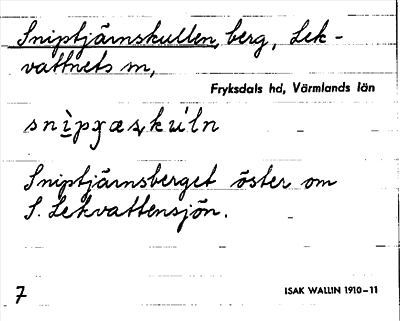 Sniptjärnskullen, berg, Lek-
vattnets sn,
Fryksdals hd, Värmlands län
Sniptjärnsberget öster om
S. Lekvattensjön.
7
ISAK WALLIN 1910-11